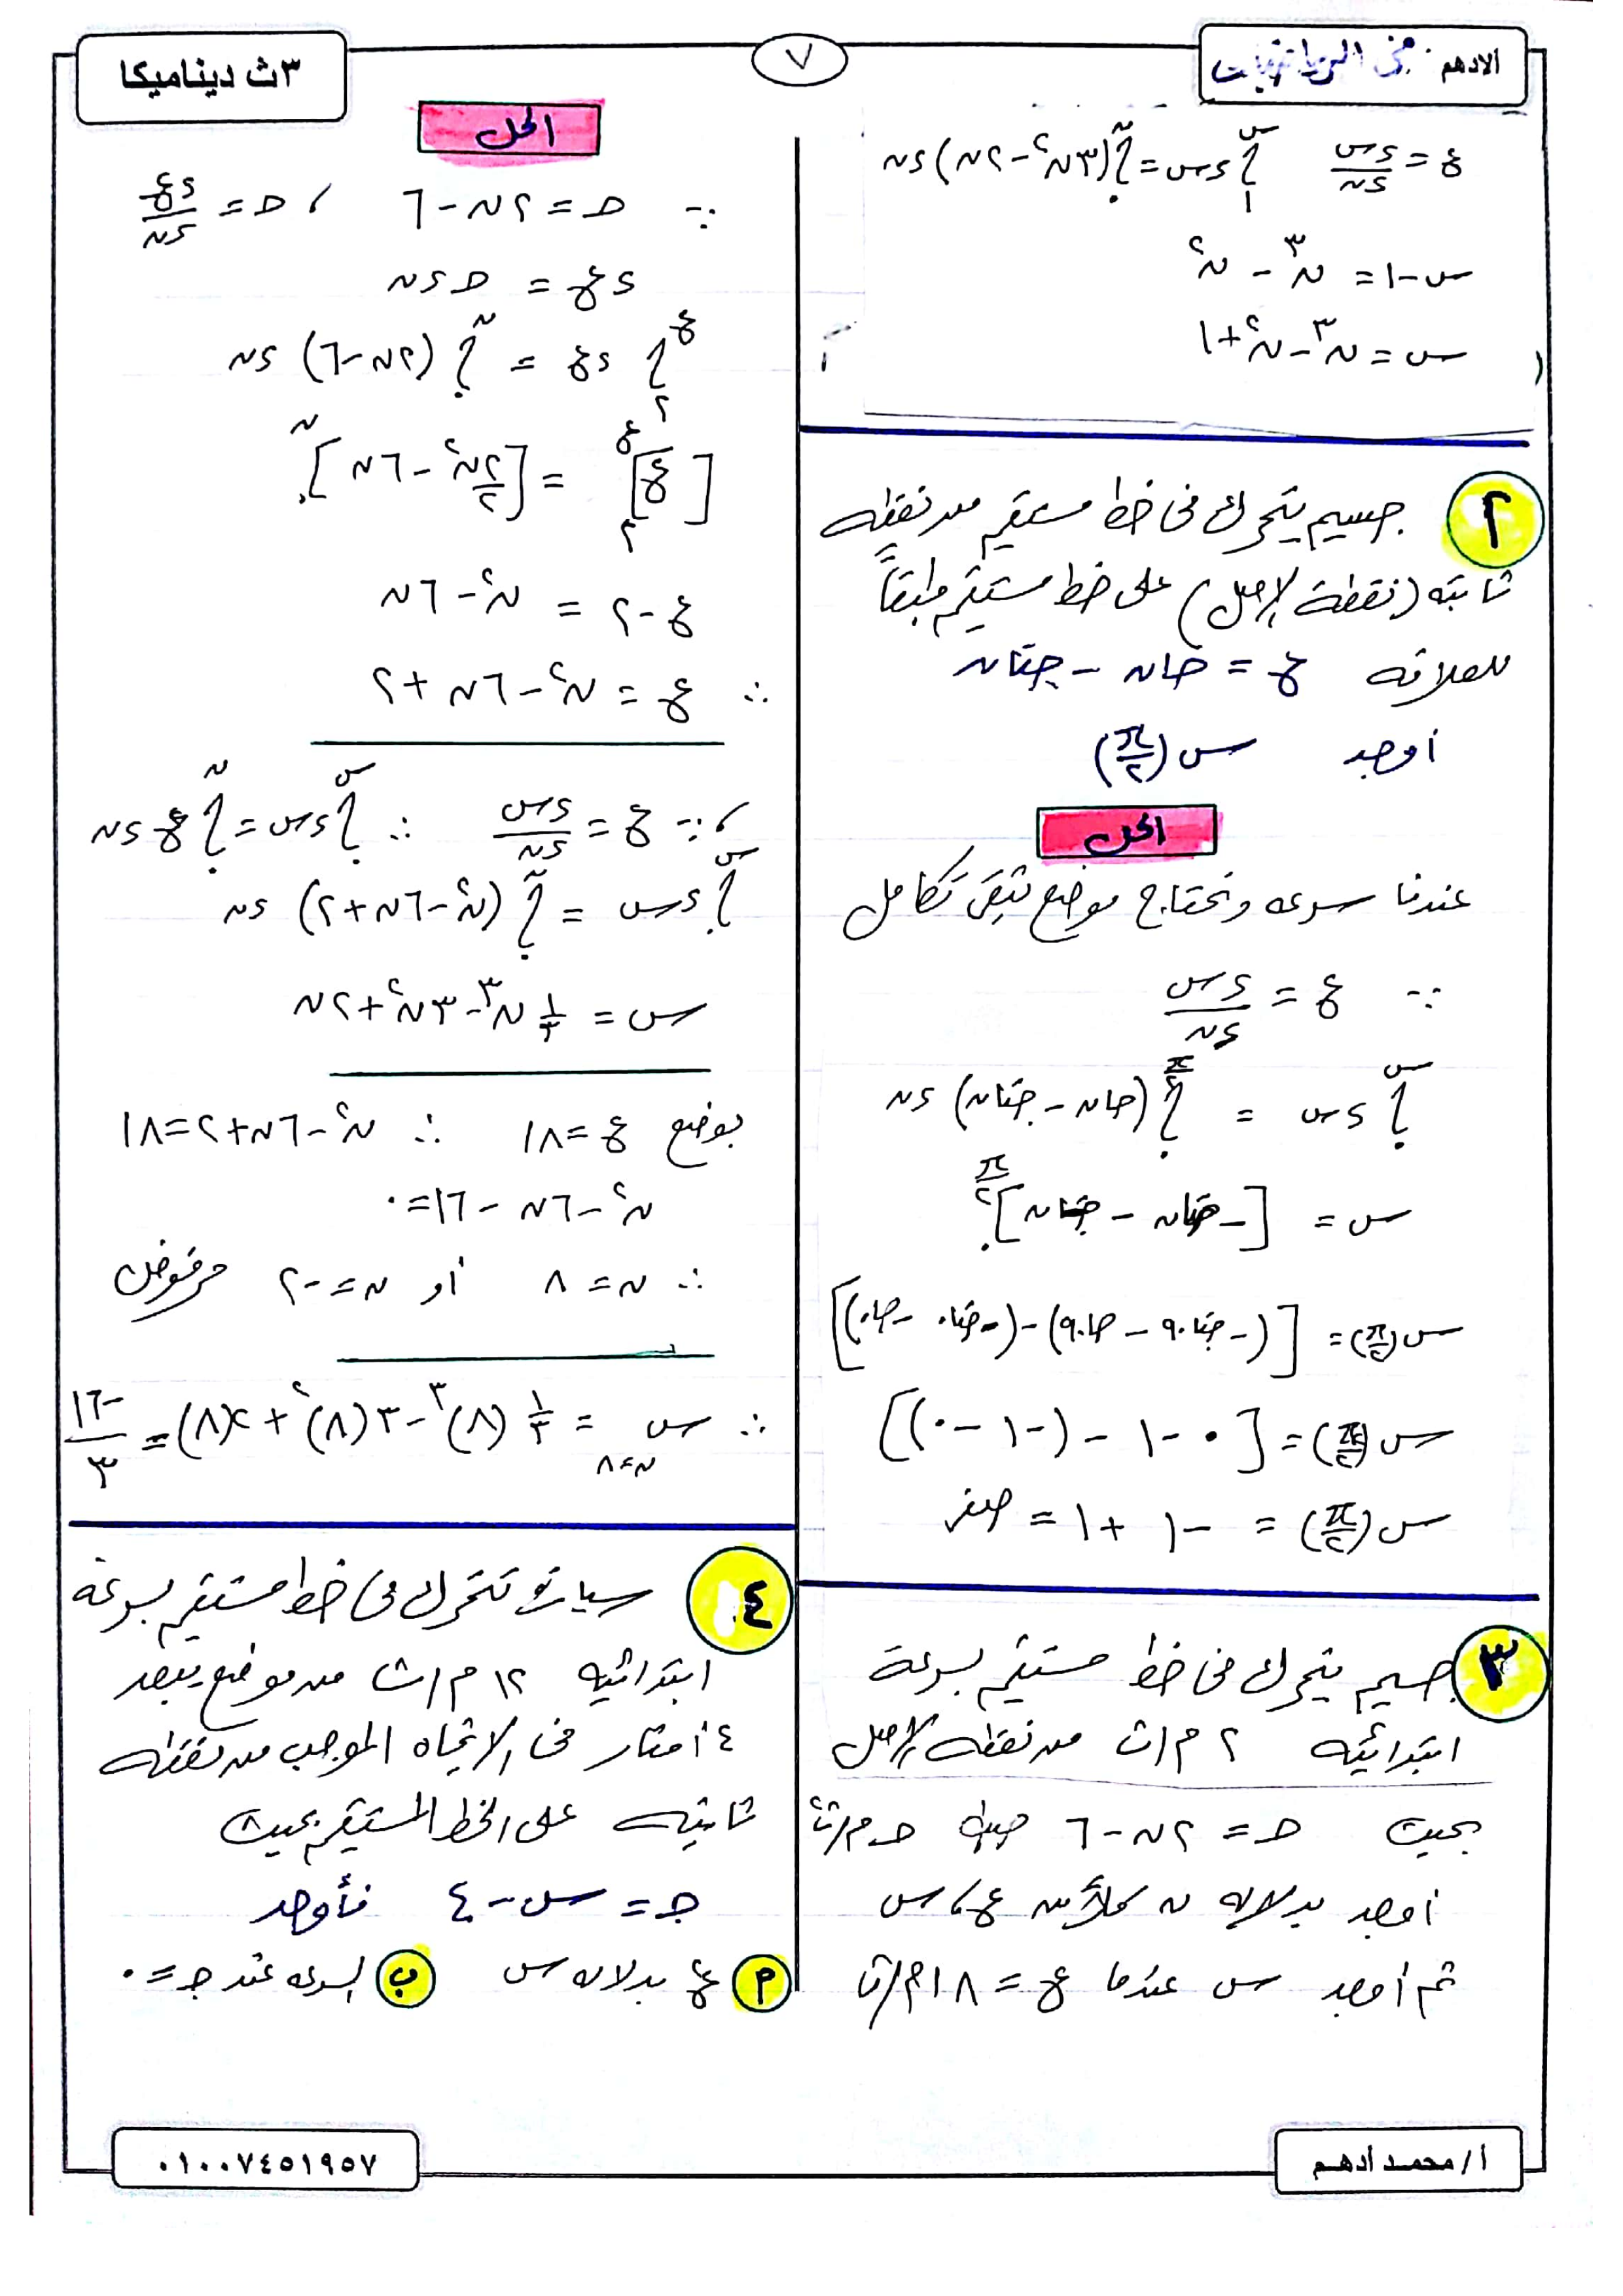 الادهم في الرياضيات
٧
٣ث ديناميكا
ع = ءس/ءن  ∫₁^س ءس = ∫.^ن (٣ن² - ٢ن) ءن
س - ١ = ن³ - ن²
س = ن³ - ن² + ١
٢ جسيم يتحرك فى خط مستقيم من نقطه
ثابته (نقطة الاصل) على خط مستقيم طبقاً
للعلاقه ع = حان - جتان
اوجد س(π/٢)
الحل
عندنا سرعه ونحتاج موضع تبقى تكامل
∵ ع = ءس/ءن
∫.^س ءس = ∫.^(π/٢) (حان - جتان) ءن
س = [-حتان - حان].^(π/٢)
س(π/٢) = [(-جتا٩٠ - حا٩٠) - (-حتا٠ - حا٠)]
س(π/٢) = [٠ - ١ - (-١ - ٠)]
س(π/٢) = -١ + ١ = صفر
٣ جسيم يتحرك فى خط مستقيم بسرعة
ابتدائيه ٢ م/ث من نقطه الاصل
بحيث حـ = ٢ن - ٦ حيث حـ م/ث²
اوجد بدلاله ن كلاً من ع، س
ثم أوجد س عندما ع = ١٨ م/ث
الحل
∵ حـ = ٢ن - ٦ ، حـ = ءع/ءن
ءع = حـ ءن
∫₂^ع ءع = ∫.^ن (٢ن - ٦) ءن
[ع]₂^ع = [٢ن²/٢ - ٦ن].^ن
ع - ٢ = ن² - ٦ن
∴ ع = ن² - ٦ن + ٢
، ∵ ع = ءس/ءن ∴ ∫.^س ءس = ∫.^ن ع ءن
∫.^س ءس = ∫.^ن (ن² - ٦ن + ٢) ءن
س = ١/٣ ن³ - ٣ن² + ٢ن
بوضع ع = ١٨ ∴ ن² - ٦ن + ٢ = ١٨
ن² - ٦ن - ١٦ = ٠
∴ ن = ٨ أو ن = -٢ مرفوض
∴ س ن=٨ = ١/٣ (٨)³ - ٣(٨)² + ٢(٨) = -١٦/٣
٤ سيارة تتحرك فى خط مستقيم بسرعة
ابتدائيه ١٢ م/ث من موضع يبعد
٤ أمتار فى الاتجاه الموجب من نقطه
ثابته على الخط المستقيم بحيث
جـ = س - ٤ فأوجد
م ع بدلاله س ب السرعه عند جـ = ٠
أ/ محمد أدهم
٠١٠٠٧٤٥١٩٥٧